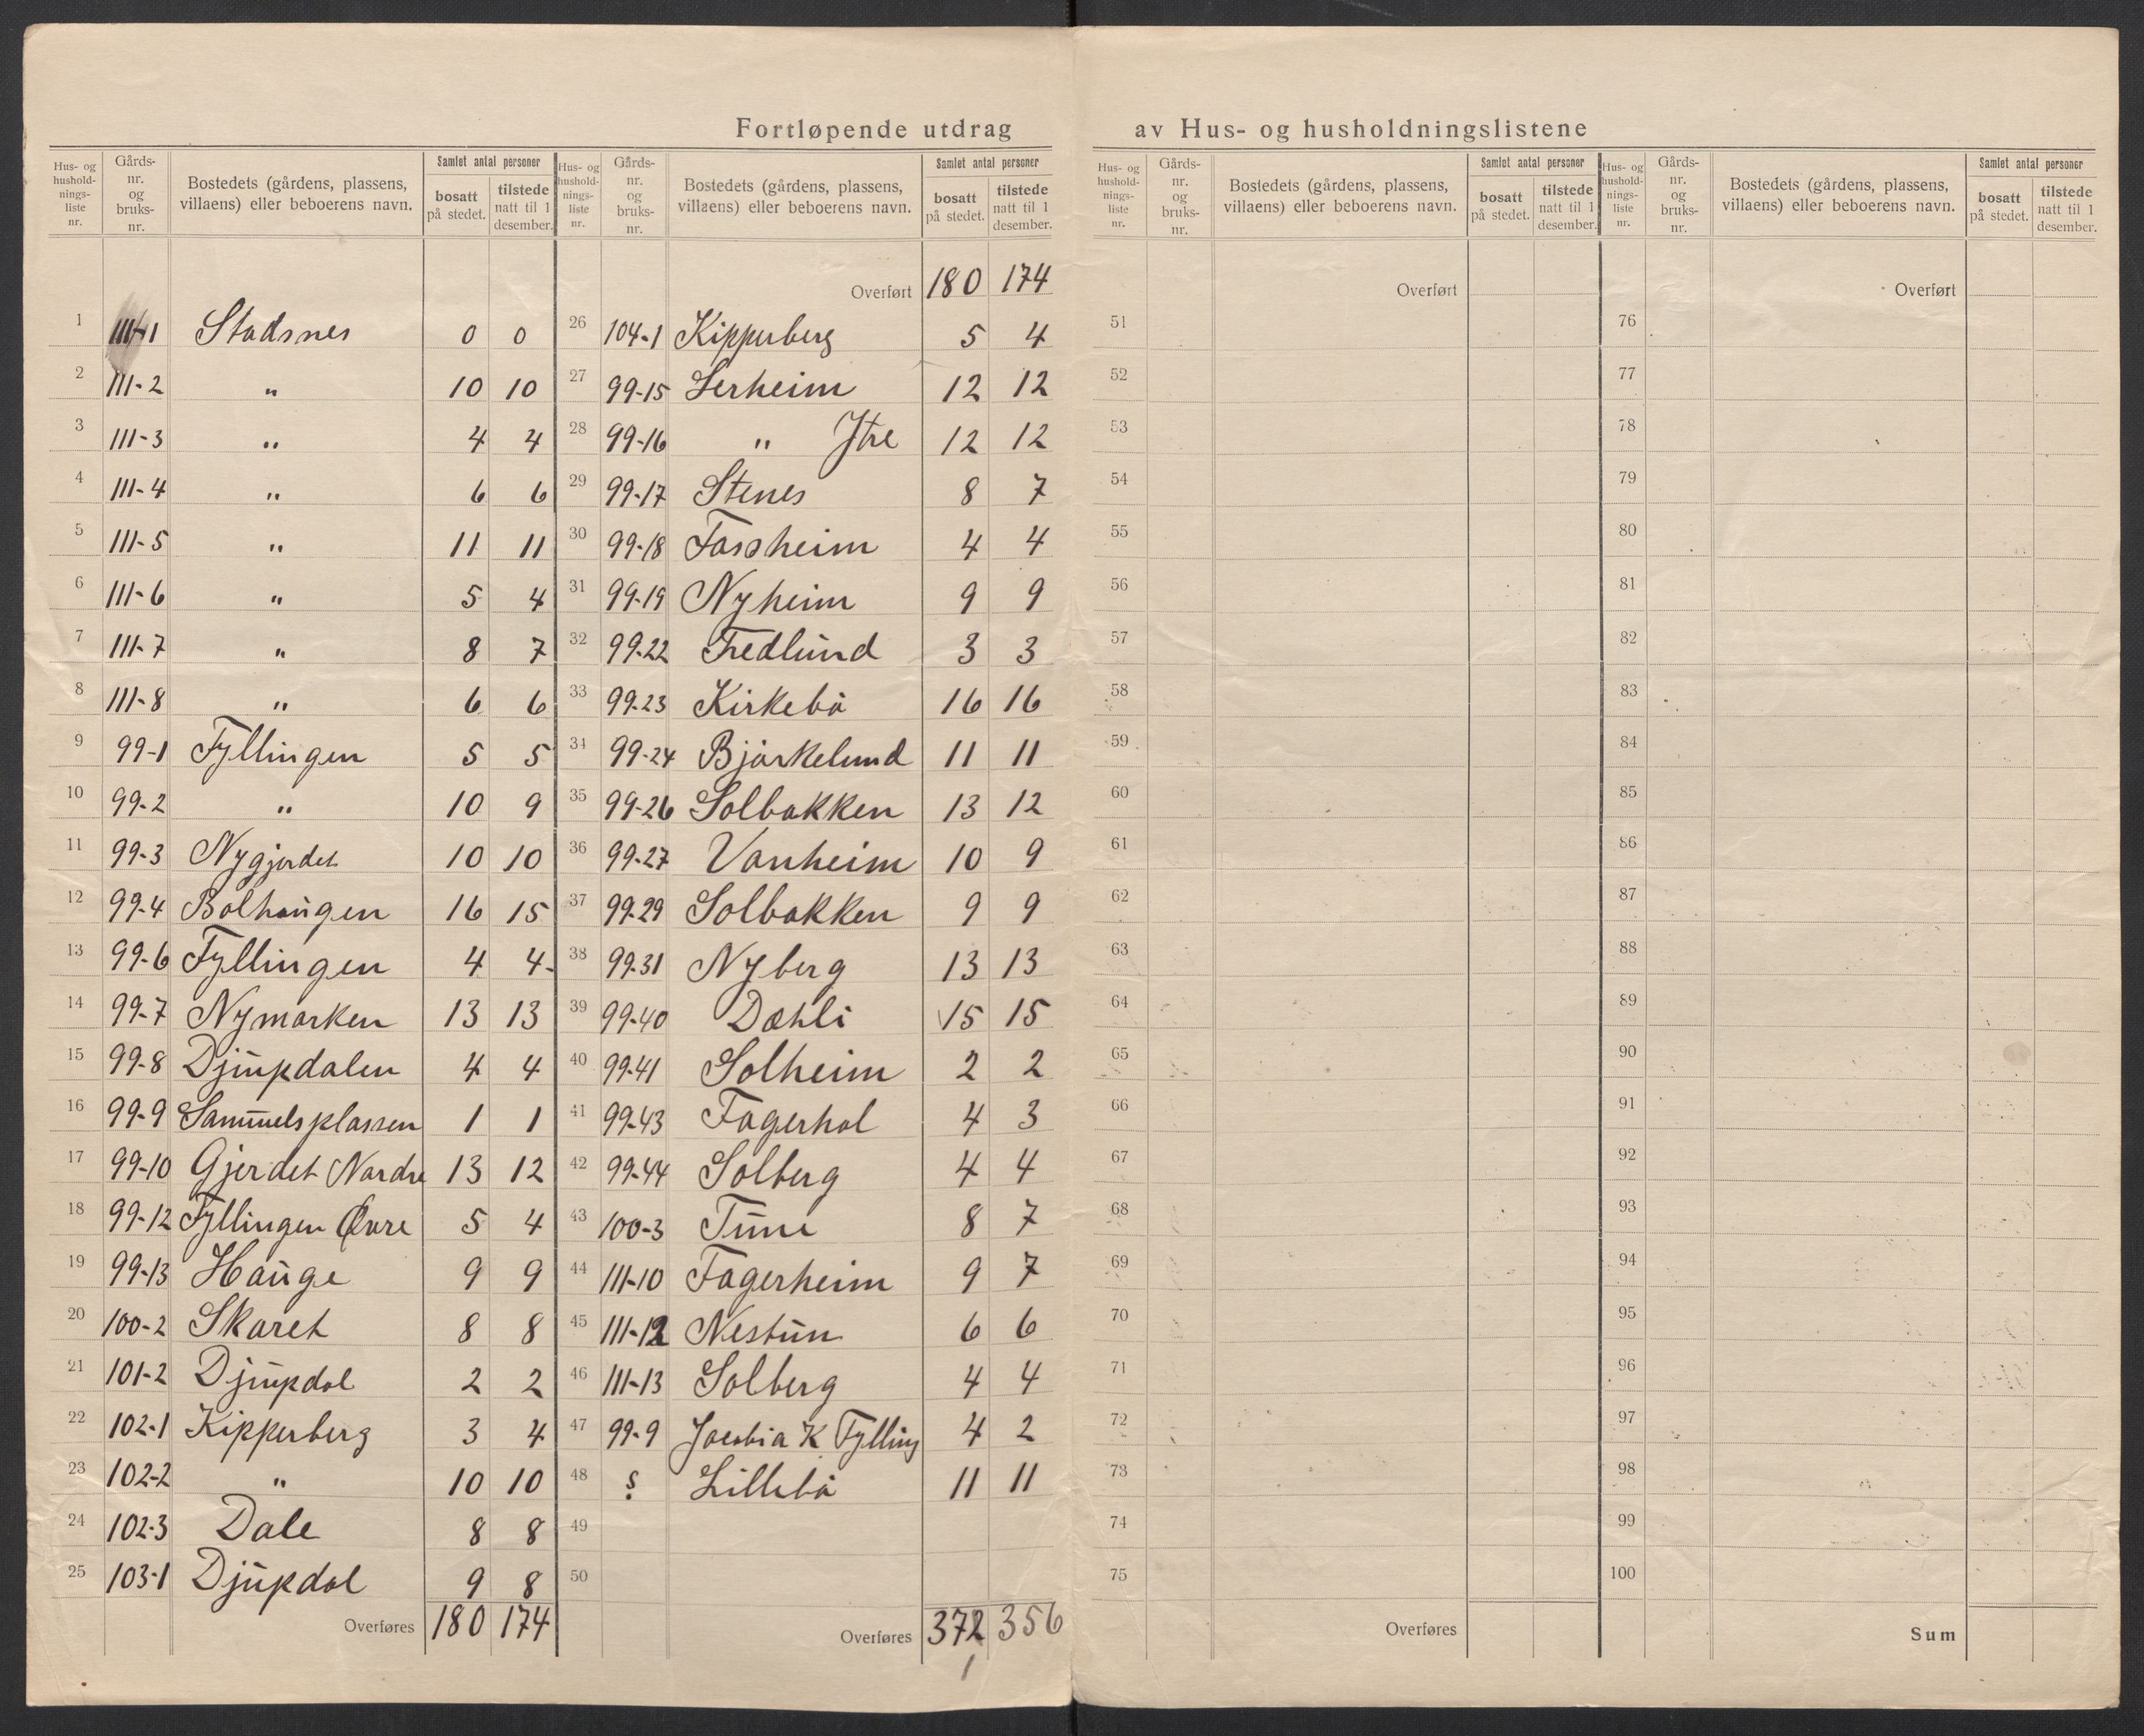 Fortløpende utdrag av Hus- og husholdningslistene
Hus- og husholdningsliste nr. | Gårdsnr. og bruksnr. | Bostedets (gårdens, plassens, villaens) eller beboerens navn. | Samlet antal personer | bosatt på stedet. | tilstede natt til 1 desember.
1 111-1 Stadsnes 0 0
2 111-2 " 10 10
3 111-3 " 4 4
4 111-4 " 6 6
5 111-5 " 11 11
6 111-6 " 5 4
7 111-7 " 8 7
8 111-8 " 6 6
9 99-1 Fyllingen 5 5
10 99-2 " 10 9
11 99-3 Nygjerdet 10 10
12 99-4 Bolhaugen 16 15
13 99-6 Fyllingen 4 4
14 99-7 Nymarken 13 13
15 99-8 Djupdalen 4 4
16 99-9 Samuelsplassen 1 1
17 99-10 Gjerdet Nordre 13 12
18 99-12 Fyllingen Øvre 5 4
19 99-13 Hauge 9 9
20 100-2 Skaret 8 8
21 101-2 Djupdal 2 2
22 102-1 Kipperberg 3 4
23 102-2 " 10 10
24 102-3 Dale 8 8
25 103-1 Djupdal 9 8
Overføres 180 174
Hus- og husholdningsliste nr. | Gårdsnr. og bruksnr. | Bostedets (gårdens, plassens, villaens) eller beboerens navn. | Samlet antal personer | bosatt på stedet. | tilstede natt til 1 desember.
Overført 180 174
26 104-1 Kipperberg 5 4
27 99-15 Lerheim 12 12
28 99-16 " Ytre 12 12
29 99-17 Stenes 8 7
30 99-18 Fossheim 4 4
31 99-19 Nyheim 9 9
32 99-22 Fredlund 3 3
33 99-23 Kirkebø 16 16
34 99-24 Bjørkelund 11 11
35 99-26 Solbakken 13 12
36 99-27 Vanheim 10 9
37 99-29 Solbakken 9 9
38 99-31 Nyberg 13 13
39 99-40 Dahli 15 15
40 99-41 Solheim 2 2
41 99-43 Fagerhol 4 3
42 99-44 Solberg 4 4
43 100-3 Tune 8 7
44 111-10 Fagerheim 9 7
45 111-12 Nestun 6 6
46 111-13 Solberg 4 4
47 99-9 Jacobia K Fylling 4 2
48 ? Lillebø 11 11
49
50
Overføres 372 356
1
Hus- og husholdningsliste nr. | Gårdsnr. og bruksnr. | Bostedets (gårdens, plassens, villaens) eller beboerens navn. | Samlet antal personer | bosatt på stedet. | tilstede natt til 1 desember.
Overført
51
52
53
54
55
56
57
58
59
60
61
62
63
64
65
66
67
68
69
70
71
72
73
74
75
Overføres
Hus- og husholdningsliste nr. | Gårdsnr. og bruksnr. | Bostedets (gårdens, plassens, villaens) eller beboerens navn. | Samlet antal personer | bosatt på stedet. | tilstede natt til 1 desember.
Overført
76
77
78
79
80
81
82
83
84
85
86
87
88
89
90
91
92
93
94
95
96
97
98
99
100
Sum